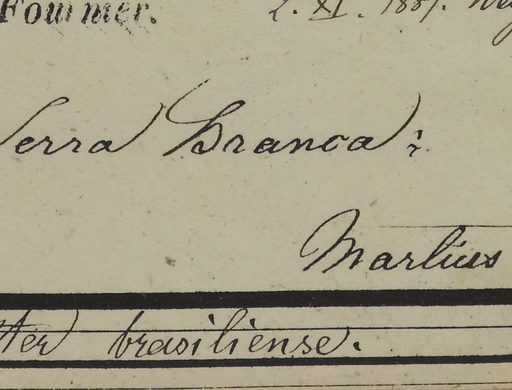 Fournier. 2. XI. 1881.
Serra Branca;
Martius
Iter brasiliense.